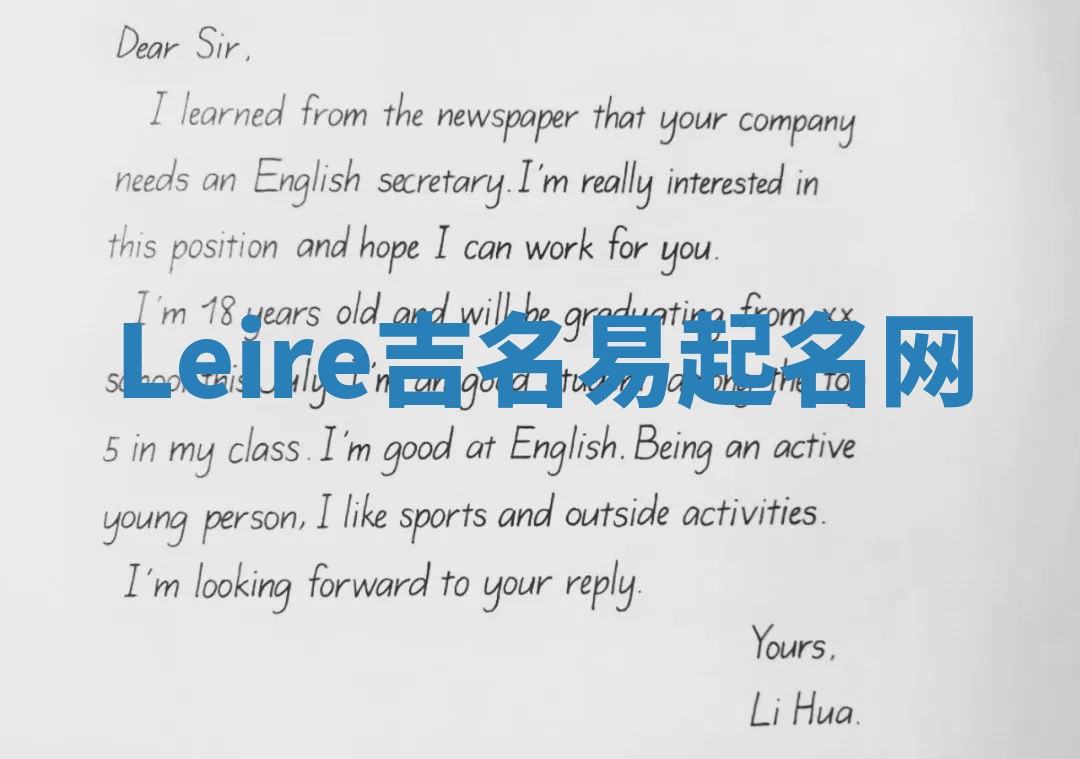 Dear Sir,
I learned from the newspaper that your company
needs an English secretary. I'm really interested in
this position and hope I can work for you.
I'm 18 years old and will be graduating from xx
Leire吉名易起名网
school this July. I'm a good student among the top
5 in my class. I'm good at English. Being an active
young person, I like sports and outside activities.
I'm looking forward to your reply.
Yours,
Li Hua.